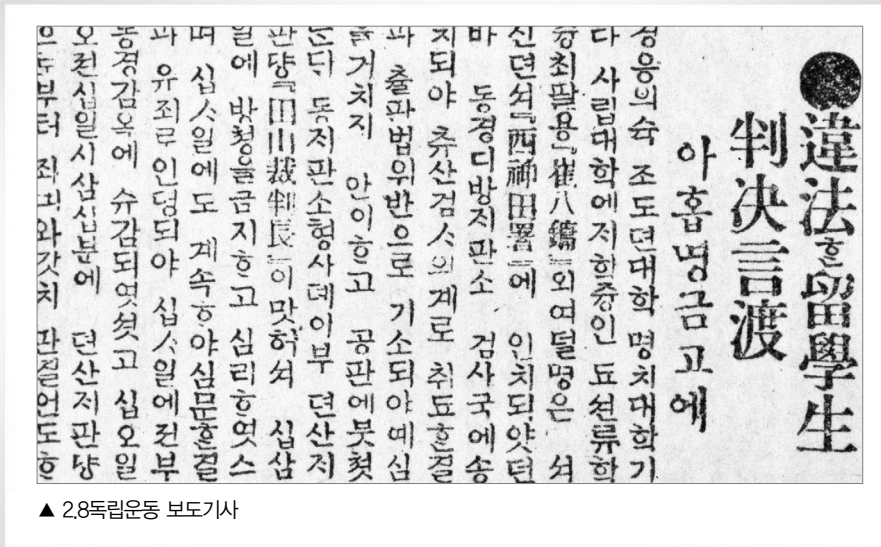 ●違法ᄒᆞᆫ留學生
判決言渡
아홉명금고에
경응의슉 조도뎐대학 명치대학기
다 사립대학에ᄌᆡ학즁인 됴션류학
ᄉᆡᆼ최팔용『崔八鏞』외여덜명은 셔
신뎐셔『西神田署』에 인치되얏던
바 동경디방ᄌᆡ판소 검사국에송
치되야 츄산검ᄉᆞ의계로 취됴ᄒᆞᆫ결
과 출파법위반으로 기소되야예심
을거치지 안이ᄒᆞ고 공판에붓쳣
는ᄃᆡ 동ᄌᆡ판소형사뎨이부 뎐산ᄌᆡ
판댱『田山裁判長』이맛허셔 십삼
일에 방쳥을금지ᄒᆞ고 심리ᄒᆞ엿스
며 십ᄉᆞ일에도 계속ᄒᆞ야심문ᄒᆞᆫ결
과 유죄로인뎡되야 십ᄉᆞ일에전부
동경감옥에 슈감되엿셧고 십오일
오젼십일시삼십분에 뎐산ᄌᆡ판댱
으로부터 좌긔와갓치 판결언도ᄒᆞ
▲ 2.8독립운동 보도기사